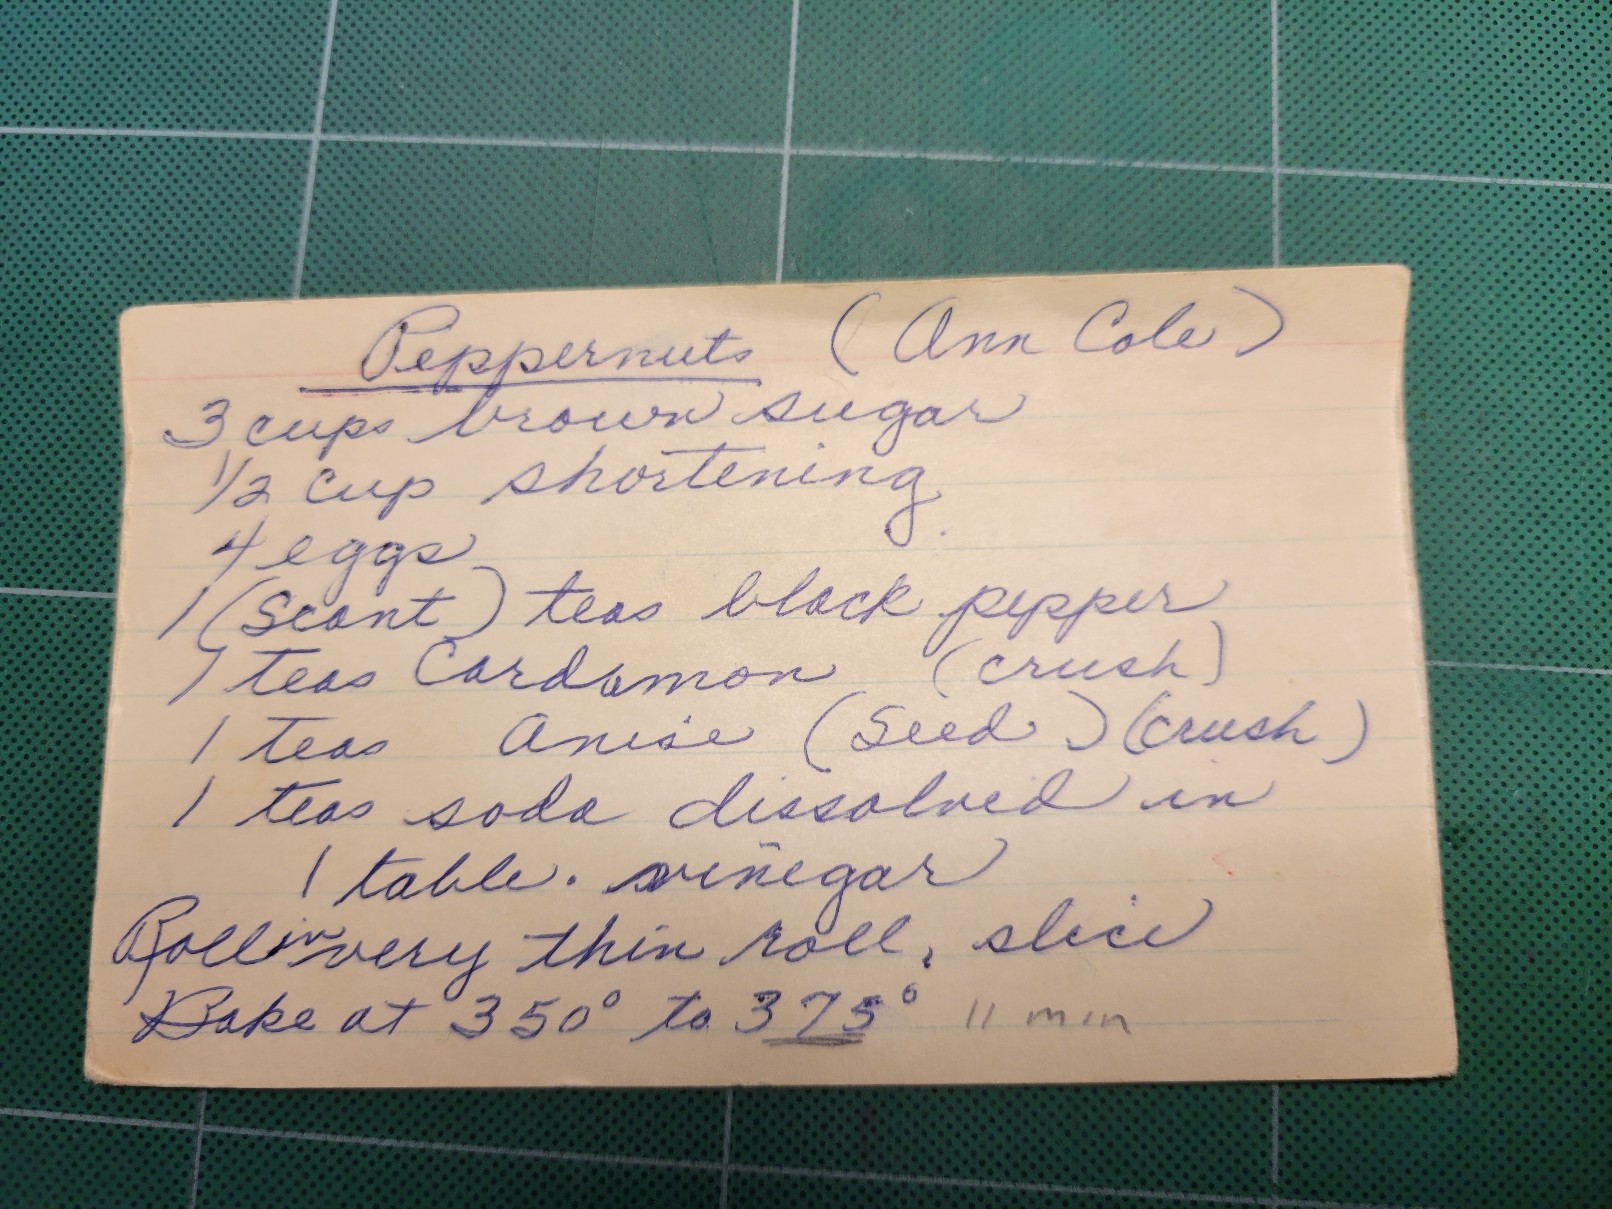 Peppernuts (Ann Cole)
3 cups brown sugar
1/2 cup shortening.
4 eggs
1 (Scant) teas black pepper
1 teas Cardamon (crush)
1 teas Anise (Seed) (crush)
1 teas soda dissolved in
1 table. vinegar
Roll in very thin roll, slice
Bake at 350° to 375° 11 min